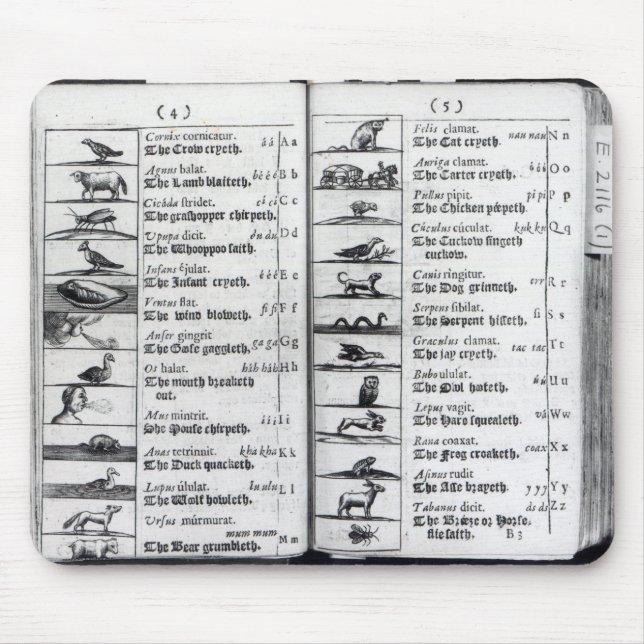 (4)
Cornix cornicatur. á á A a
The Crow cryeth.
Agnus balat. b é é é B b
The Lamb blaiteth.
Cicáda stridet. cì cì C c
The grashopper chirpeth.
Upupa dicit. du du D d
The Whooppoo saith.
Infans éjulat. é é é E e
The Infant cryeth.
Ventus flat. fi fi F f
The wind bloweth.
Anser gingrit ga ga G g
The Goose gaggleth,
Os halat. háh háh H h
The mouth breaketh
out,
Mus mintrit. í í í I i
The Mouse chirpeth.
Anas tetrinnit. kha kha K k
The Duck quacketh.
Lupus úlulat. lu ulu L l
The Wolf howleth.
Ursus múrmurat.
mum mum M m
The Bear grumbleth.
(5)
Felis clamat. nau nau N n
The Cat cryeth.
Auriga clamat. ó ó ó O o
The Carter cryeth.
Pullus pipit. pi pi P p
The Chicken peepeth.
Cúculus cúculat. kuk ku Q q
The Cuckow singeth
cuckow.
Canis ringitur. err R r
The Dog grinneth.
Serpens sibilat. si S s
The Serpent hisseth.
Graculus clamat. tac tac T t
The jay cryeth.
Bubo ululat. ú ú U u
The Owl hooteth.
Lepus vagit. vá W w
The Hare squealeth.
Rana coaxat. coax X x
The Frog croaketh.
Asinus rudit y y y Y y
The Asse brayeth.
Tabanus dicit. ds ds Z z
The Breeze or Horse-
flie saith. B 3
E. 2116 (1)